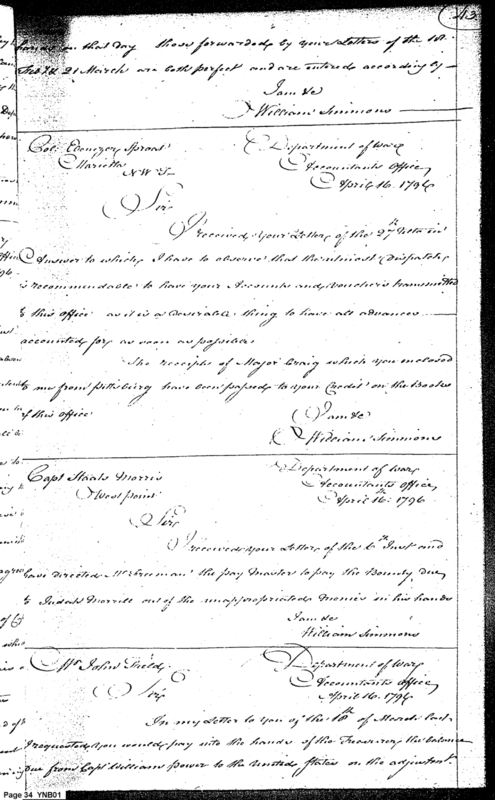 43
on that day those forwarded by your Letters of the 1st
Feb & 21 March are both perfect and are entered according by
I am &c
William Simmons
Col. Ebenezer Sproat
Marietta
N W T
Department of War
Accountants Office
April 16. 1796
Sir
I received your Letter of the 27th Ulto in
Answer to which I have to observe that the utmost Dispatch
is recommendable to have your Accounts and Vouchers transmitted
to this Office as it is a desirable thing to have all advances
accounted for as soon as possible
The receipts of Major Craig which you enclosed
to me from Pittsburg have been passed to your Credit on the Books
of this office
I am &c
William Simmons
Capt Staats Morris
West point
Department of War
Accountants office
April 16th 1796
Sir
I received your Letter of the 6th Inst and
have directed Mr Freeman the pay Master to pay the Bounty due
to Judah Morrill out of the unappropriated Monies in his hands
I am &c
William Simmons
Mr John
Department of War
Accountants office
April 16. 1796
Sir
In my Letter to you of the 18th of March last
I requested you would pay into the hands of the Treasurer the balance
due from Capt William Power to the United States on the adjustmt
Page 34 YNB01